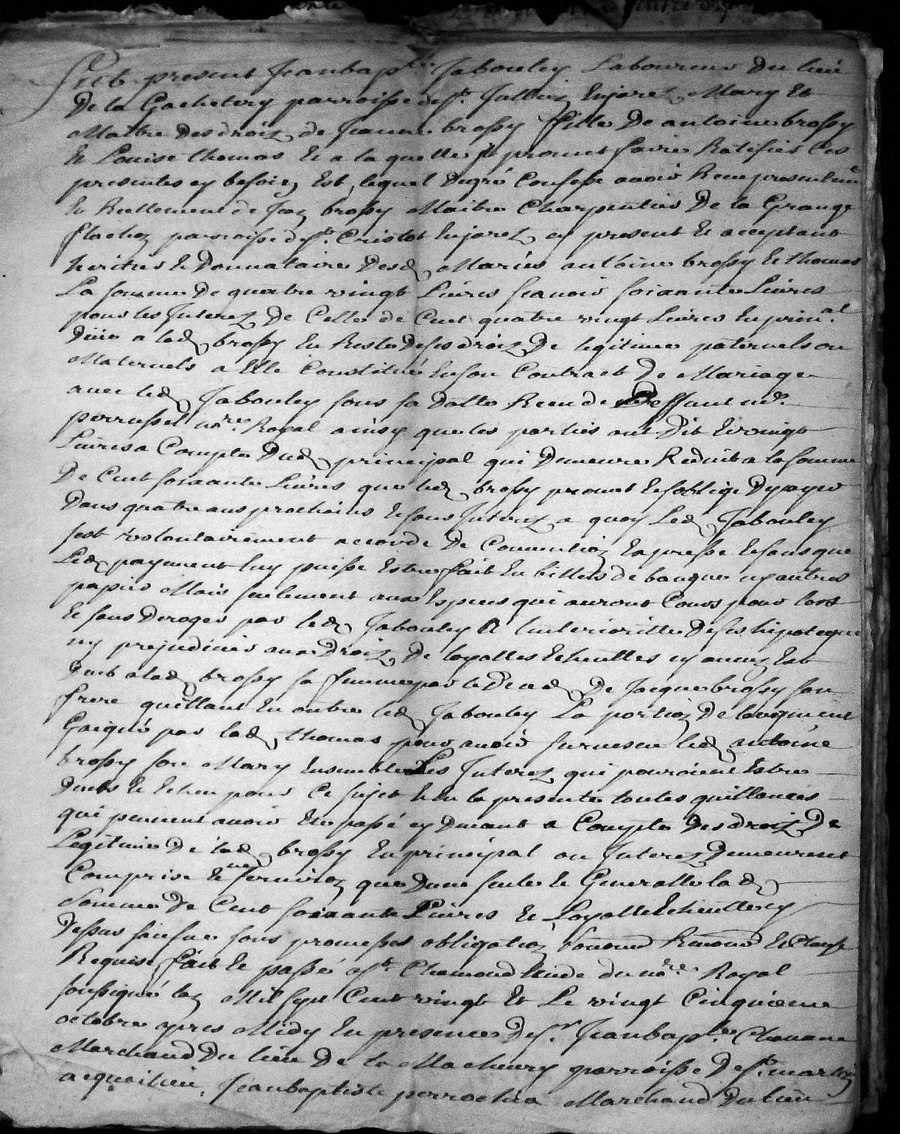 Fut present Jeanbapt. Jabouley Laboureur Du lieu
De la Gacheterie parroisse de St. Jullien Enjarez Mary Et
Maitre Des droiz de Jeanne brossy fille De antoine brossy
Et Louise thomas Et a laquelle Il promet faire Ratifier Ces
presentes sy besoin Est, lequel De gré Confesse avoir Receu presentem
Et Reellement de Jean brossy Maitre Charpentier De la Grange
flachon parroisse de St. Cristot Enjarez, cy present Et acceptant
heritier Et Donnataire Desd Mariés antoine brossy Et thomas
La somme De quatre vingt Livres scavoir soixante Livres
pour les Interez De Celle de Cent quatre vingt Livres En prin.al
Düe a lad brossy En Reste De ses droiz De legitime paternels ou
Maternels a Elle Constitué En son Contract De Mariage
avec led Jabouley sous sa Datte Receu de Deffunt me.
perrussel no.re Royal ainsy que les parties ont Dit Et vingt
Livres a Compte Dud principal qui Demeure Reduit a la somme
De Cent soixante Livres que led brossy promet Et s'oblige De payer
Dans quatre ans prochains Et sans Interez a quoy Led Jabouley
s'est volontairement accordé De Convention Expresse Et sans que
Led payement luy puisse Estre fait En billets de banque ny autres
papiers Mais seulement aux Especes qui auront Cours pour lors
Et sans Deroger par led Jabouley A l'anteriorité De ses hipoteques
ny prejudicier aux Droiz De loyalles Echeuttes sy aucuns Est
Deub a lad brossy sa femme par le Deced De Jacque brossy son
frere quittant En outre led Jabouley La portion De l'augment
Gaigné par lad thomas pour avoir survescu led antoine
brossy son Mary Ensemble Les Interez qui pouroient Estre
Deubs Et Echeu pour Ce sujet Et En la presente toutes quittances
qui peuvent avoir Eté passé cy Devant a Compte Des droiz De
Legitime De lad brossy En principal ou Interez Demeurent
Comprise Et ne serviron que D'une seulle Et Generalle lad
Somme De Cent soixante Livres Et Loyalle Echeutte cy
Dessus sauf sous promesses obligation, soumis Renond Et Clauses
Requise fait Et passé a St. Chamond Etude du no.re Royal
soussigné Lan Mil sept Cent vingt Et Le vingt Cinquieme
octobre apres Midy En presence De sr. Jeanbapt.e Chavane
Marchand Du lieu De la Machuery parroisse De St. martin
acqualieu, Jeanbaptiste perrachia Marchand Du lieu